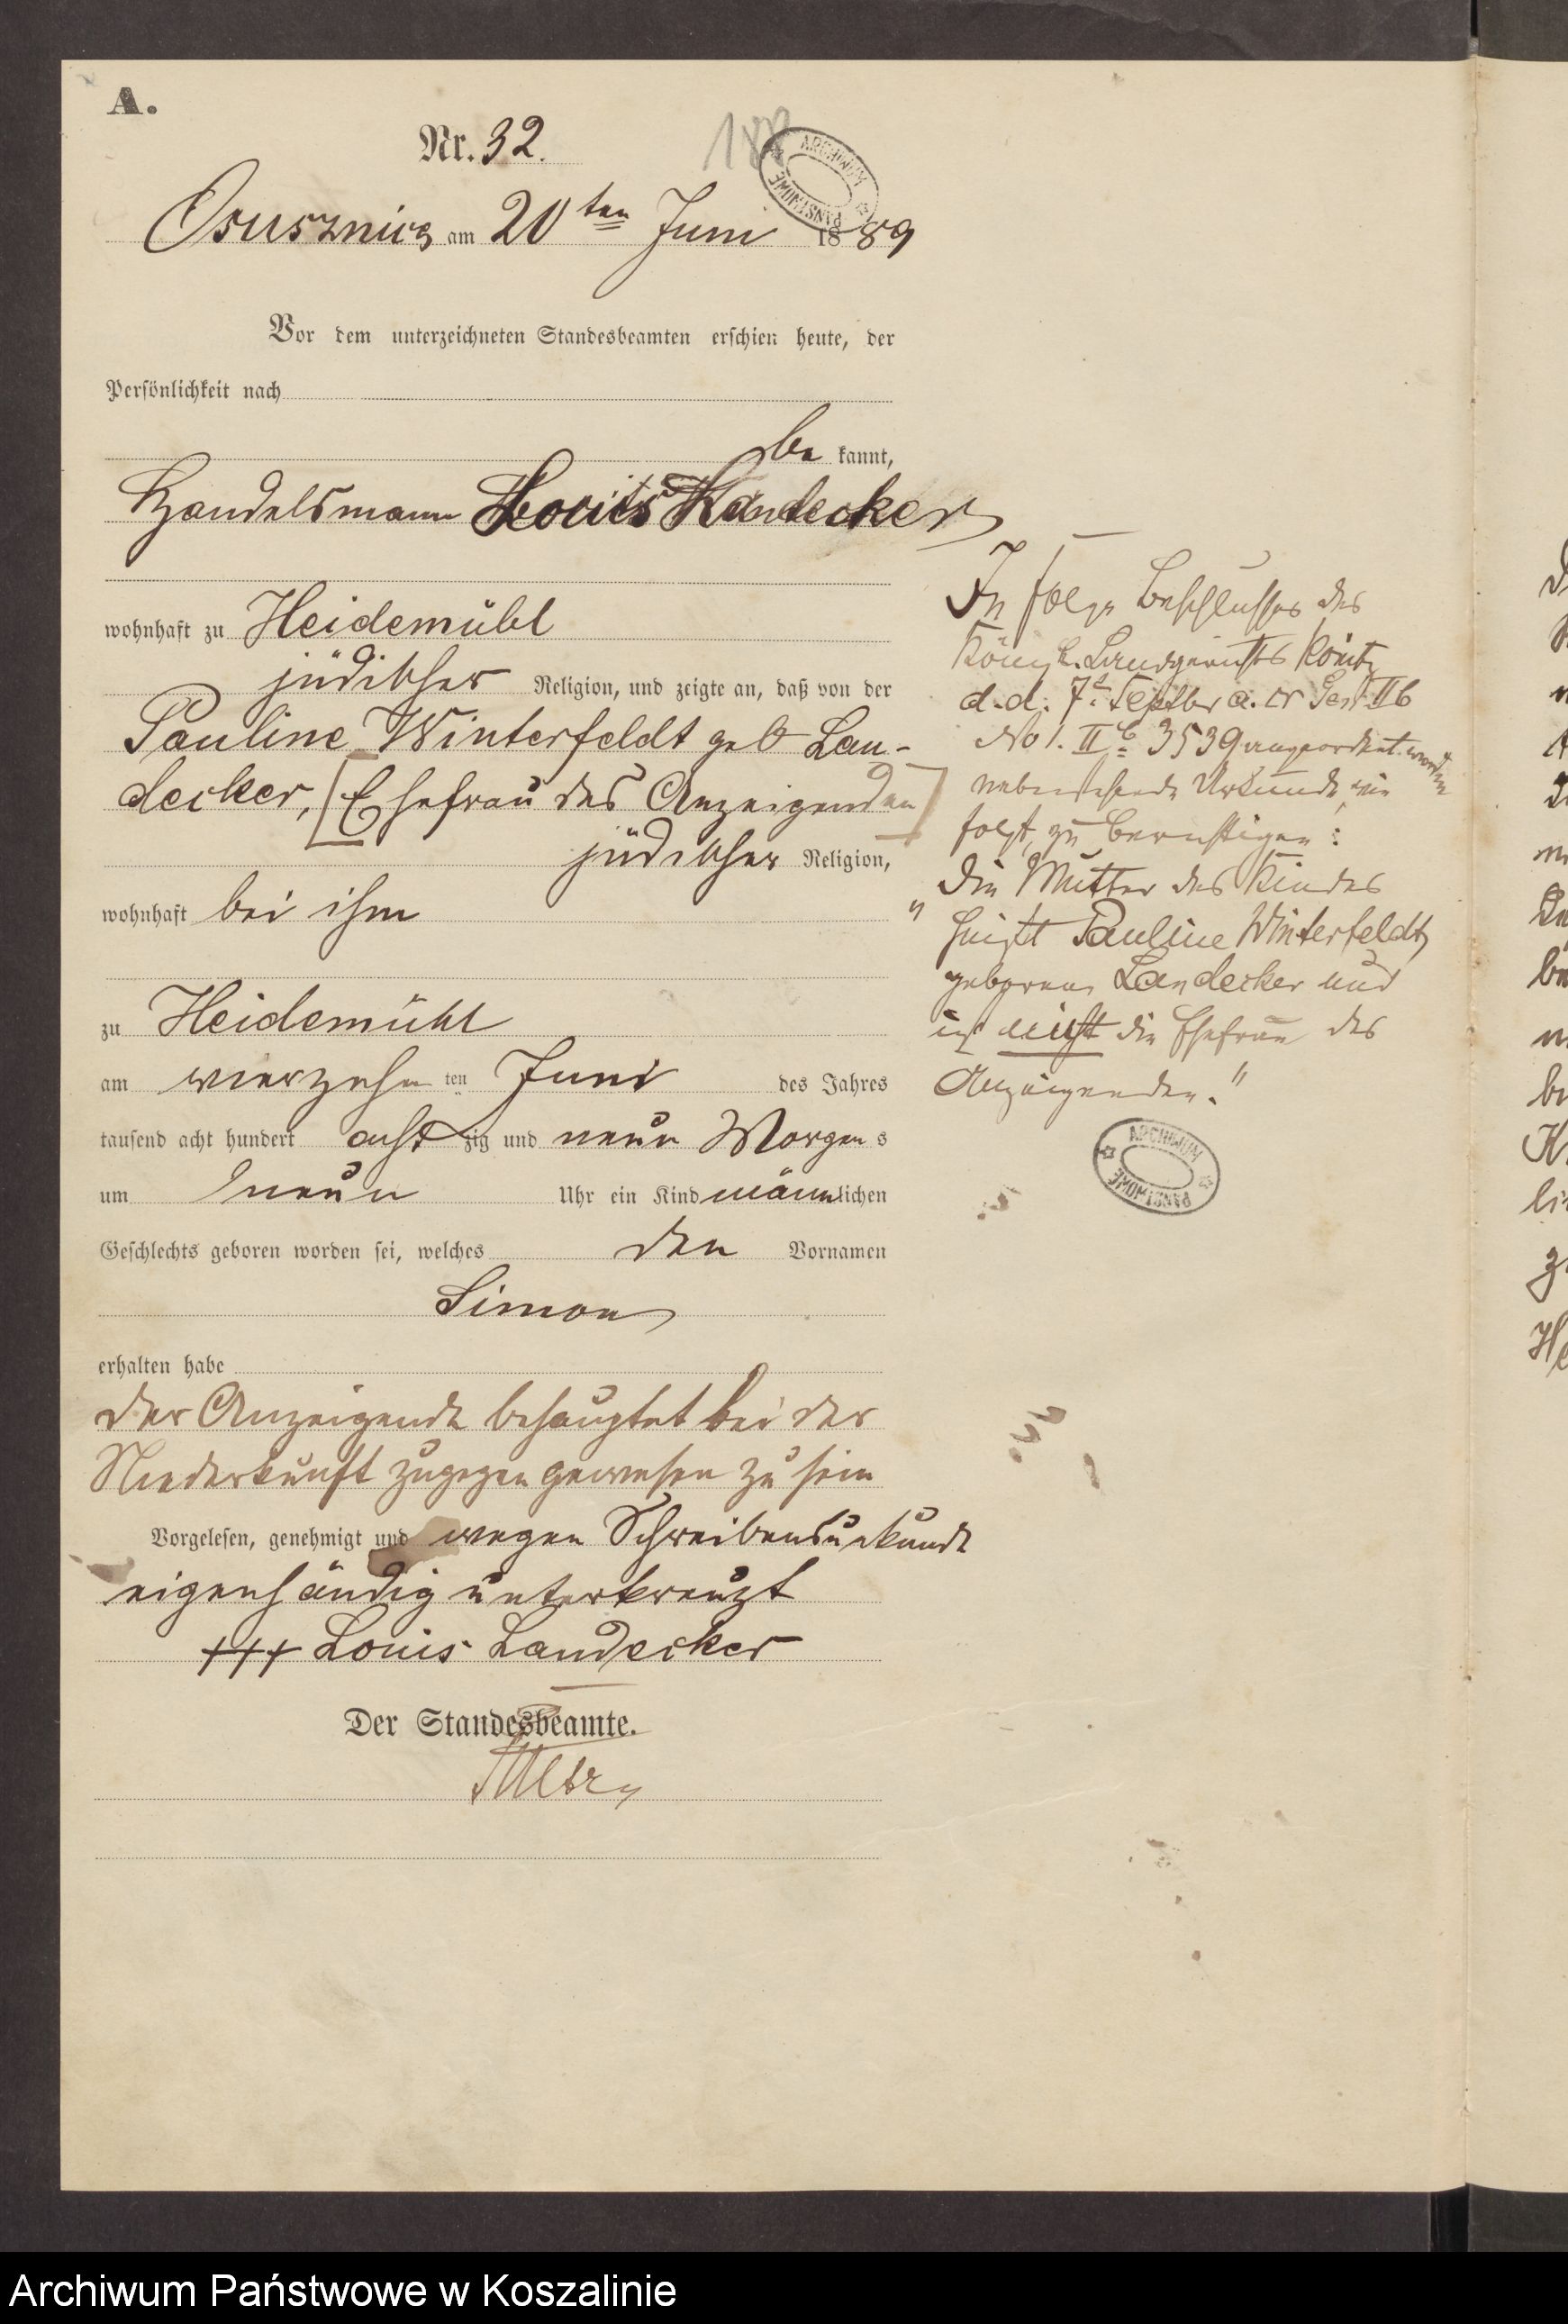 A.
Nr. 32.
188
ARCHIWUM PAŃSTWOWE
Osusznica am 20ten Juni 1889
Vor dem unterzeichneten Standesbeamten erschien heute, der
Persönlichkeit nach
be kannt,
Handelsmann Louis Landecker
wohnhaft zu Heidemühl
jüdischer Religion, und zeigte an, daß von der
Pauline Winterfeldt geb Lan-
decker, [Ehefrau des Anzeigenden]
jüdischer Religion,
wohnhaft bei ihm
zu Heidemühl
am vierzehn ten Juni des Jahres
tausend acht hundert acht zig und neun Morgen s
um neun Uhr ein Kind männlichen
Geschlechts geboren worden sei, welches den Vornamen
Simon
erhalten habe
Der Anzeigende behauptet bei der
Niederkunft zugegen gewesen zu sein
Vorgelesen, genehmigt und wegen Schreibensunkunde
eigenhändig unterkreuzt
+++ Louis Landecker
Der Standesbeamte.
In Folge Beschlusses des
Königl. Landgerichts Konitz
d. d. 7t Septbr a. cr IIb
No 1. IIC 3539 angeordnet worden
nebenstehende Urkunde, wie
folgt, zu berichtigen:
"Die Mutter des Kindes
heißt Pauline Winterfeldt
geborene Landecker und
ist nicht die Ehefrau des
Anzeigenden."
ARCHIWUM PAŃSTWOWE
Archiwum Państwowe w Koszalinie